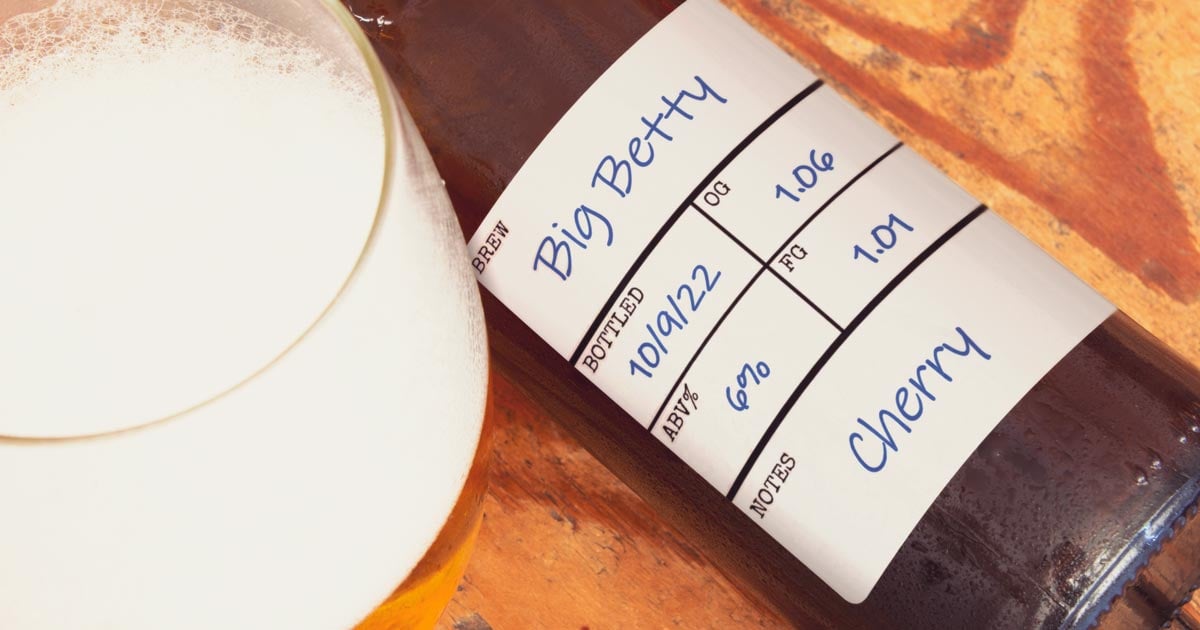 BREW
Big Betty
BOTTLED
10/9/22
OG
1.06
ABV%
6%
FG
1.01
NOTES
Cherry